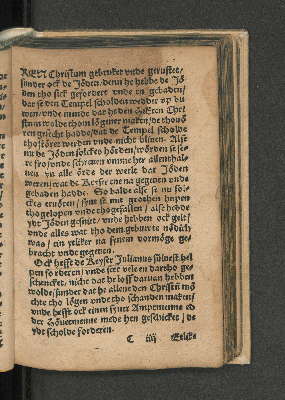 REN Christum gebruket vnde gerustet/
sunder ock de Jöden/denn he hebbe de Jö
den tho sick gefordert vnde en gebaden/
dat se den Tempel scholden wedder vp bu
wen/vnde meinde dat he den HEren Chri
stum wolde thom lögener maken/de thouö
rn gesecht hadde/dat de Tempel scholde
thostöret werden vnde nicht bliuen. Alse
nu de Jöden solckes hörden/wörden se se
re fro/vnde schreuen vmme her allenthal-
uen yn alle örde der werlt dar Jöden
weren/wat de Keyser en na gegeuen vnde
gebaden hadde. So balde alse se nu sol-
ckes erfören/sint se mit groten hupen
thogelopen vnde thogefallen/alse hedde
ydt Jöden gesniet/vnde hebben ock gelt/
vnde alles wat tho dem gebuwte nödich
was/ein yeliker na synem vormöge ge-
bracht vnde gegeuen.
Ock hefft de Keyser Julianus süluest hel
pen forderen/vnde seer vele en dartho ge-
schencket/nicht dat he loff daruan hebben
wolde/sunder dat he allene den Christū mö
chte tho lögen vnde tho schanden maken/
vnde hefft ock einen syner Amptmenne
der Höuetmenne mede hen geschicket/de
ydt scholde forderen.
C iiij Etlike